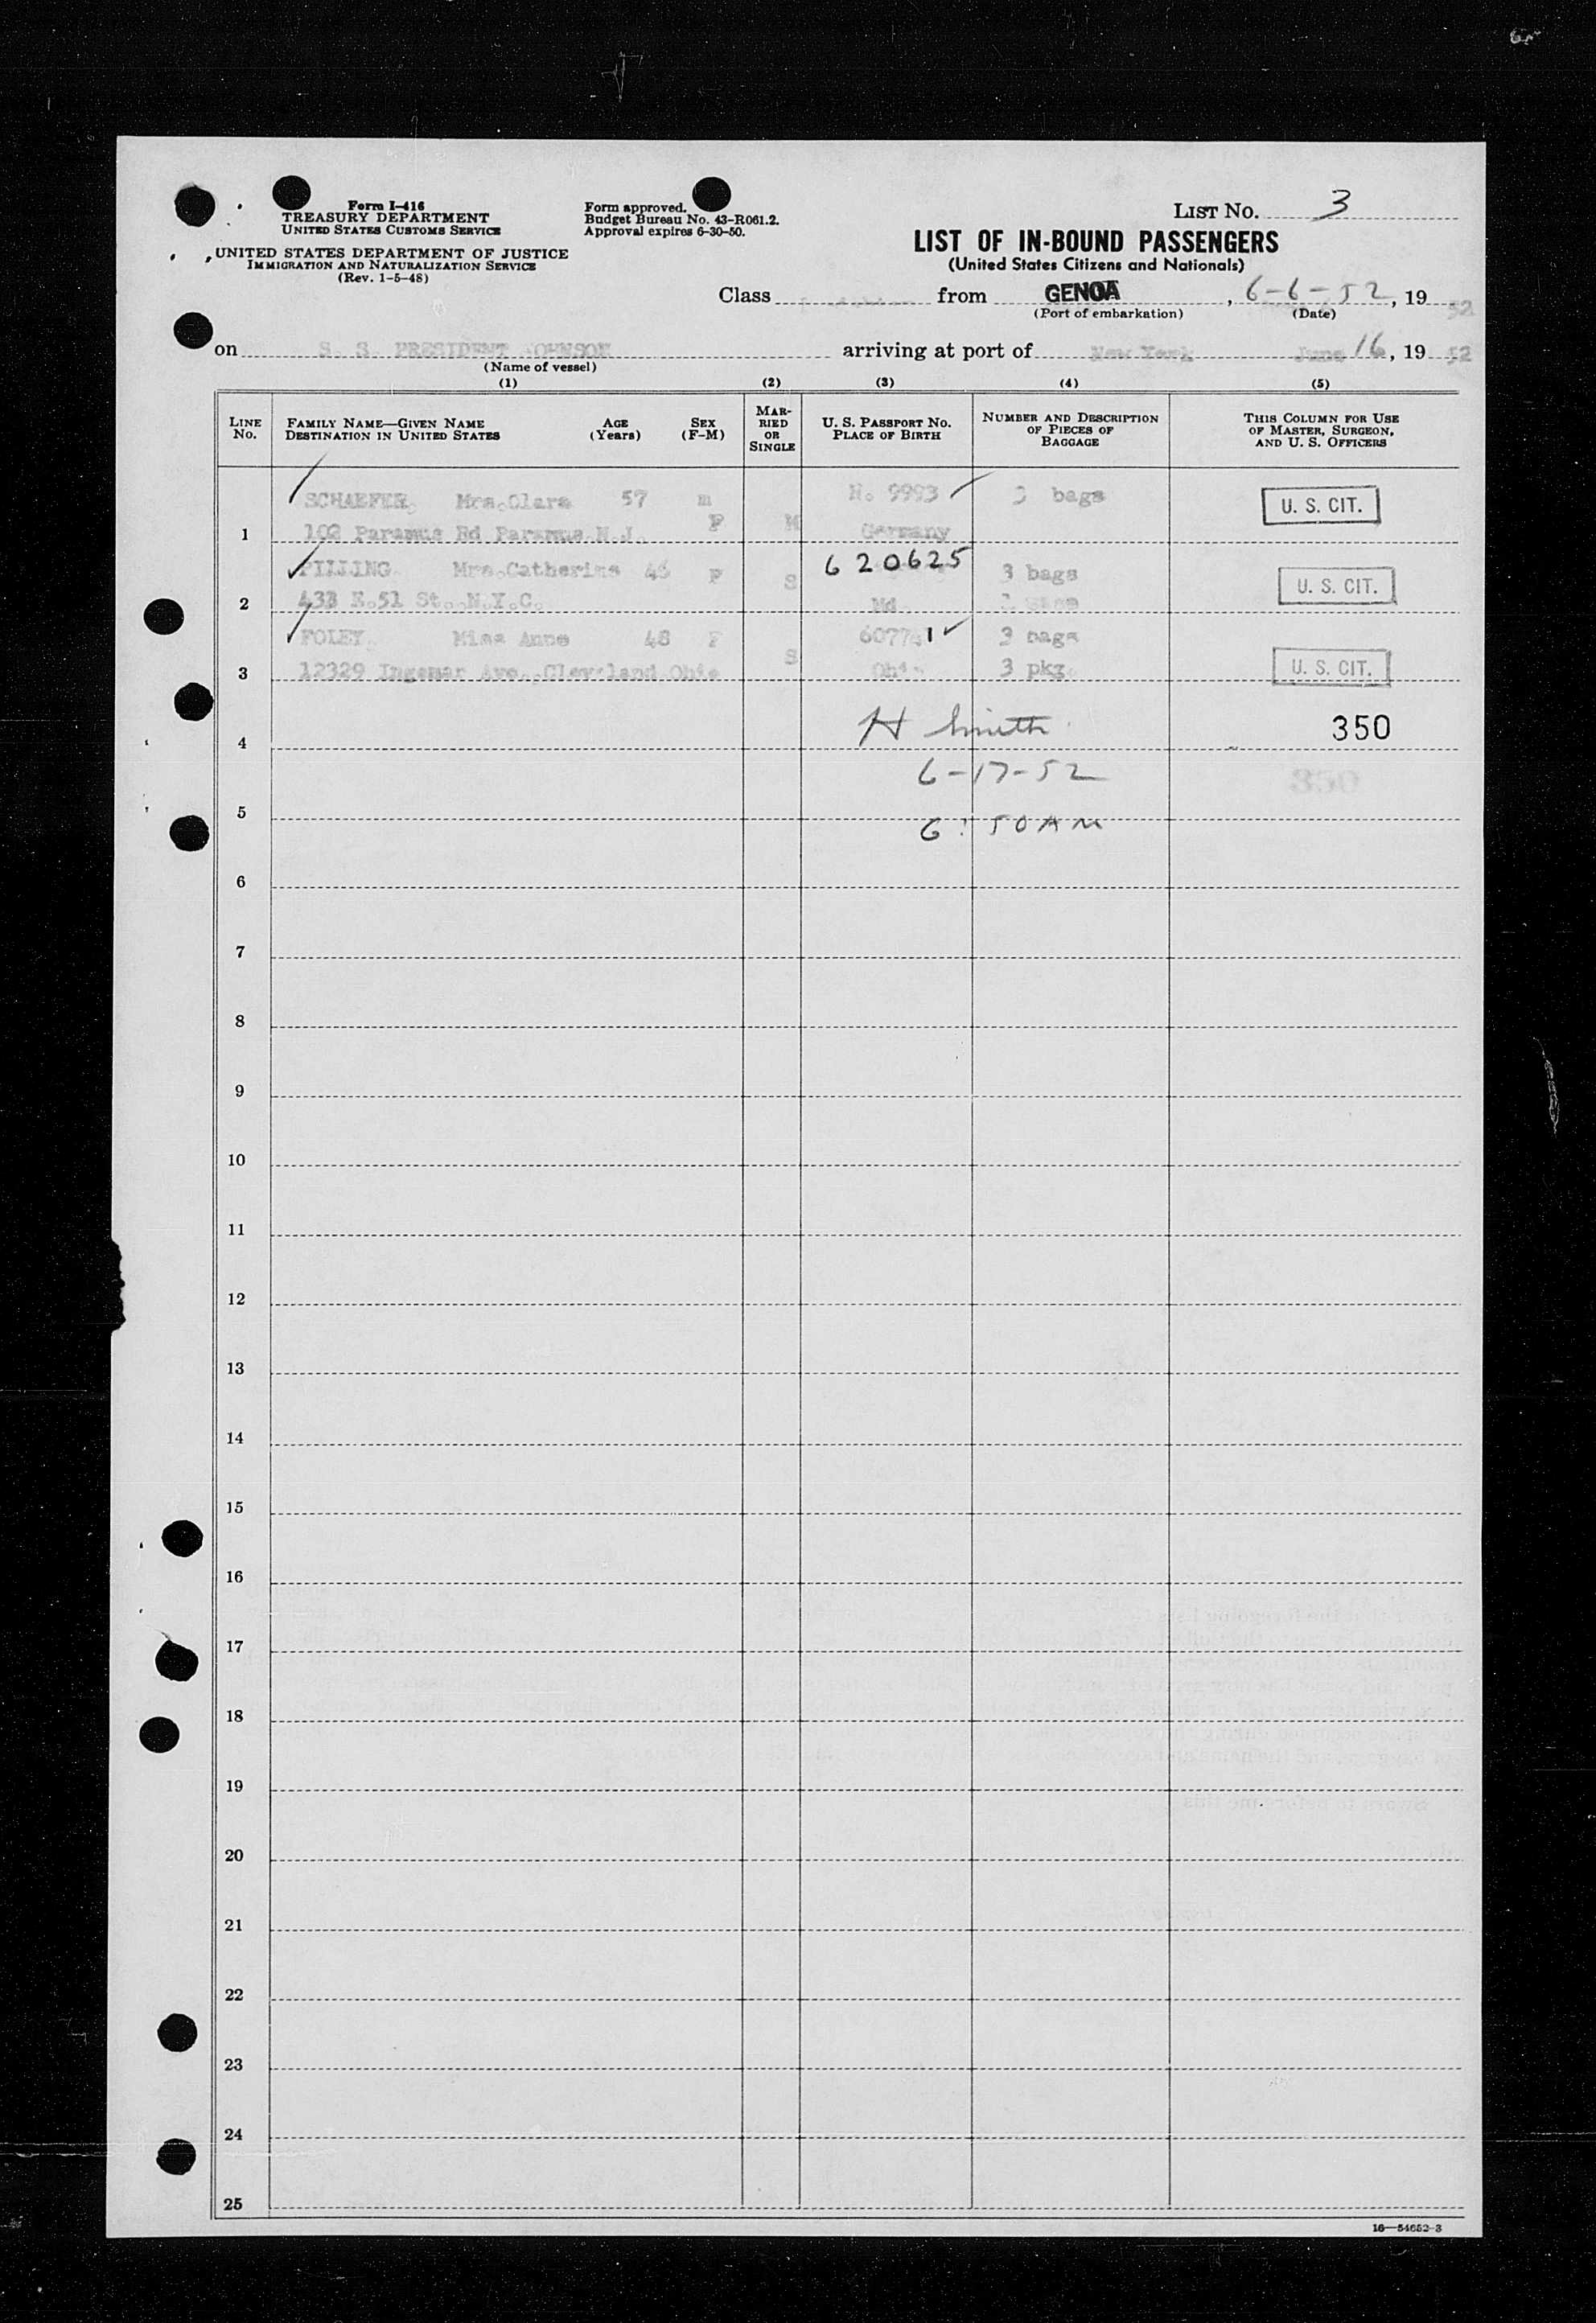 Form I-416
TREASURY DEPARTMENT
UNITED STATES CUSTOMS SERVICE
UNITED STATES DEPARTMENT OF JUSTICE
IMMIGRATION AND NATURALIZATION SERVICE
(Rev. 1-5-48)
Form approved.
Budget Bureau No. 43-R061.2.
Approval expires 6-30-50.
LIST NO. 3
LIST OF IN-BOUND PASSENGERS
(United States Citizens and Nationals)
Class from GENOA, 6-6-52, 19 52
(Port of embarkation) (Date)
on S. S. PRESIDENT JOHNSON arriving at port of New York June 16, 19 52
(Name of vessel)
(1) (2) (3) (4) (5)
LINE No.
FAMILY NAME—GIVEN NAME AGE SEX
DESTINATION IN UNITED STATES (Years) (F-M)
MAR-
RIED
OR
SINGLE
U. S. PASSPORT NO.
PLACE OF BIRTH
NUMBER AND DESCRIPTION
OF PIECES OF
BAGGAGE
THIS COLUMN FOR USE
OF MASTER, SURGEON,
AND U. S. OFFICERS
SCHAEFER, Mrs.Clara 57 m No. 9993 3 bags U. S. CIT.
1 102 Paramus Rd Paramus N.J. F M Germany
PILLING Mrs.Catherine 46 F S 620625 3 bags U. S. CIT.
2 433 E.51 St. N.Y.C. Md
FOLEY Miss Anne 48 F S 3 bags
3 12329 Ingomar Ave.,Cleveland Ohio Ohio 3 pkg. U. S. CIT.
H Smith 350
4
6-17-52 350
5
6:50 AM
6
7
8
9
10
11
12
13
14
15
16
17
18
19
20
21
22
23
24
25
16—54652-3